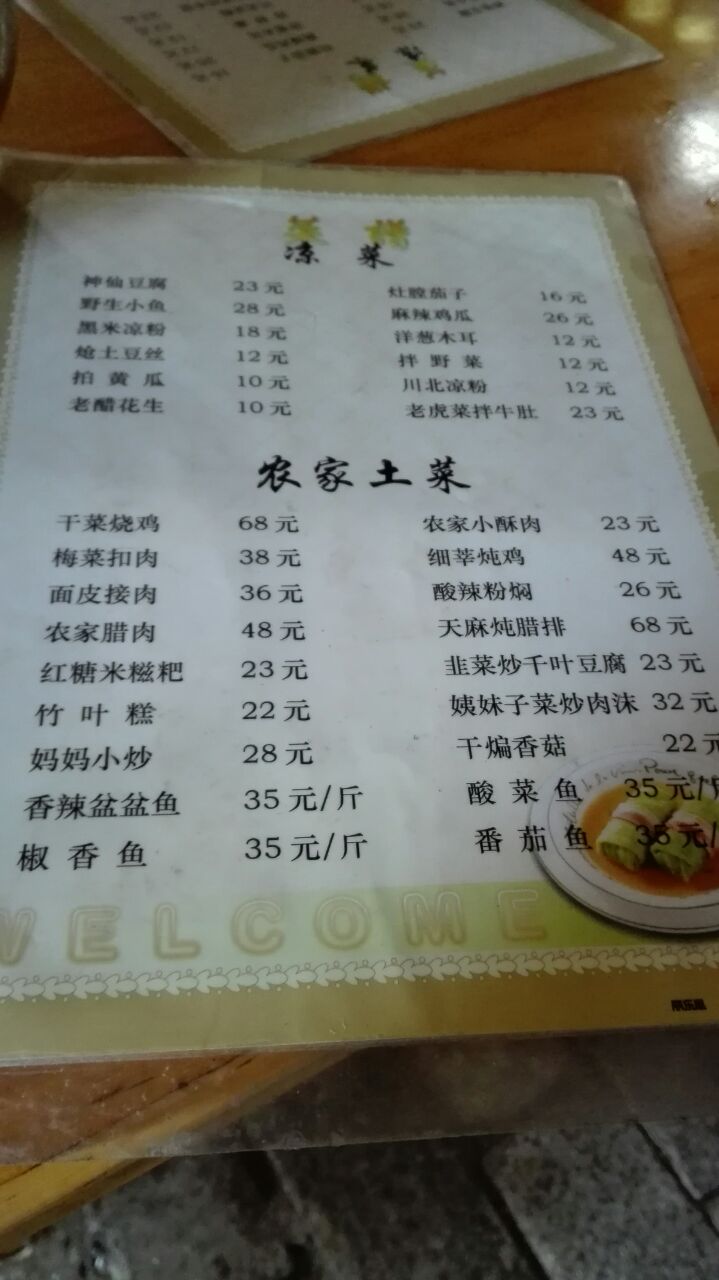 菜样
凉 菜
神仙豆腐 23元 灶膛茄子 16元
野生小鱼 28元 麻辣鸡瓜 26元
黑米凉粉 18元 洋葱木耳 12元
炝土豆丝 12元 拌 野 菜 12元
拍 黄 瓜 10元 川北凉粉 12元
老醋花生 10元 老虎菜拌牛肚 23元
农家土菜
干菜烧鸡 68元 农家小酥肉 23元
梅菜扣肉 38元 细莘炖鸡 48元
面皮接肉 36元 酸辣粉焖 26元
农家腊肉 48元 天麻炖腊排 68元
红糖米糍粑 23元 韭菜炒千叶豆腐 23元
竹 叶 糕 22元 姨妹子菜炒肉沫 32元
妈妈小炒 28元 干煸香菇 22元
香辣盆盆鱼 35元/斤 酸 菜 鱼 35元/斤
椒 香 鱼 35元/斤 番 茄 鱼 35元/
WELCOME